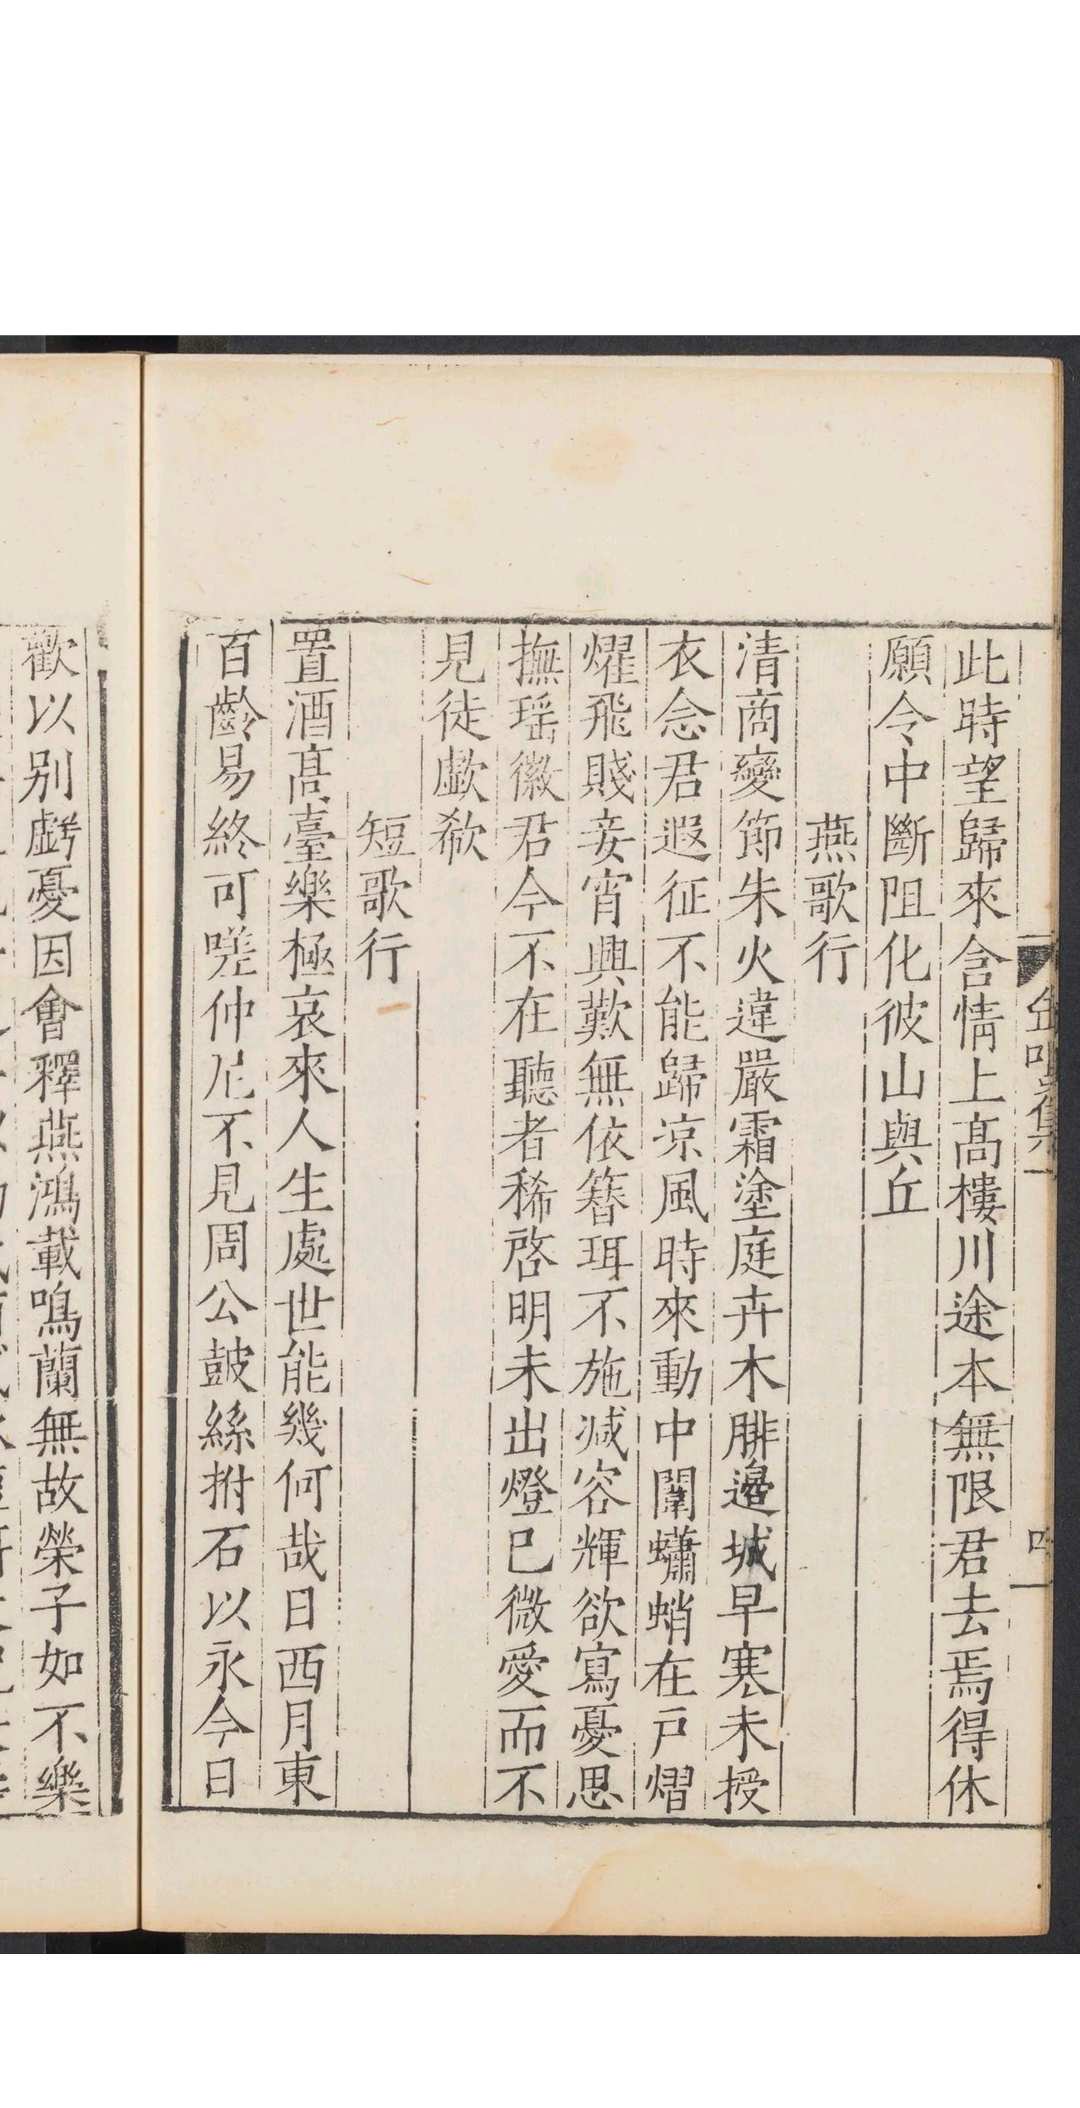 此時望歸來含情上髙樓川途本無限君去焉得休
願令中斷阻化彼山與丘
燕歌行
清商變節朱火違嚴霜塗庭卉木腓邉城早寒未授
衣念君遐征不能歸凉風時來動中闈蠨蛸在戸熠
燿飛賤妾宵興歎無依簪珥不施減容輝欲寫憂思
撫瑶徽君今不在聽者稀啓明未出燈已微愛而不
見徒歔欷
短歌行
置酒髙臺樂極哀來人生處世能幾何哉日西月東
百齡易終可嗟仲尼不見周公鼓絲拊石以永今日
歡以别虧憂因會釋燕鴻載鳴蘭無故榮子如不樂